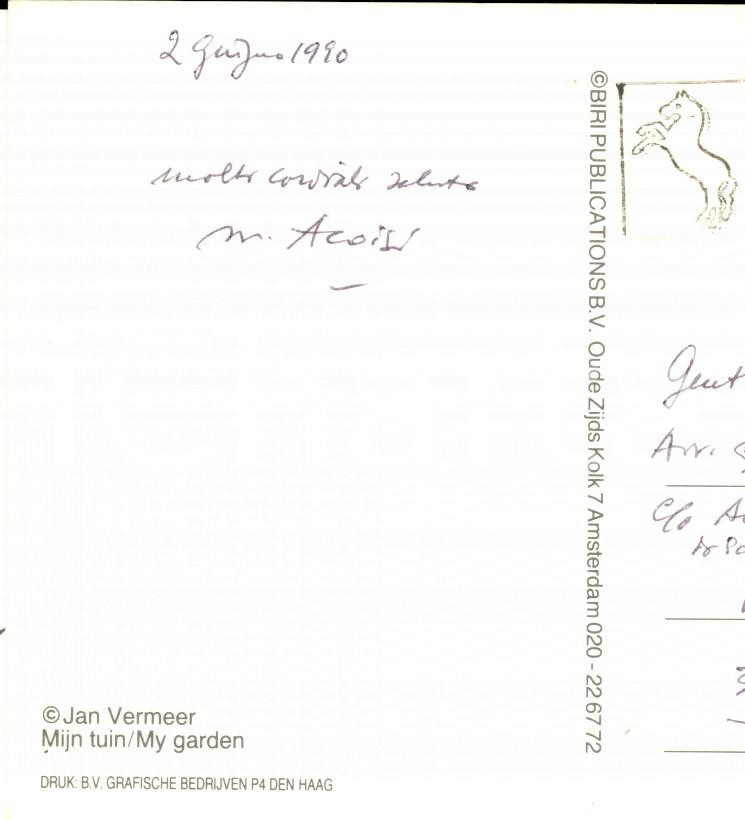 2 Giugno 1990
molti cordiali saluti
M.
©BIRI PUBLICATIONS B.V. Oude Zijds Kolk 7 Amsterdam 020 - 22 67 72
Gent
c/o
©Jan Vermeer
Mijn tuin/My garden
DRUK: B.V. GRAFISCHE BEDRIJVEN P4 DEN HAAG